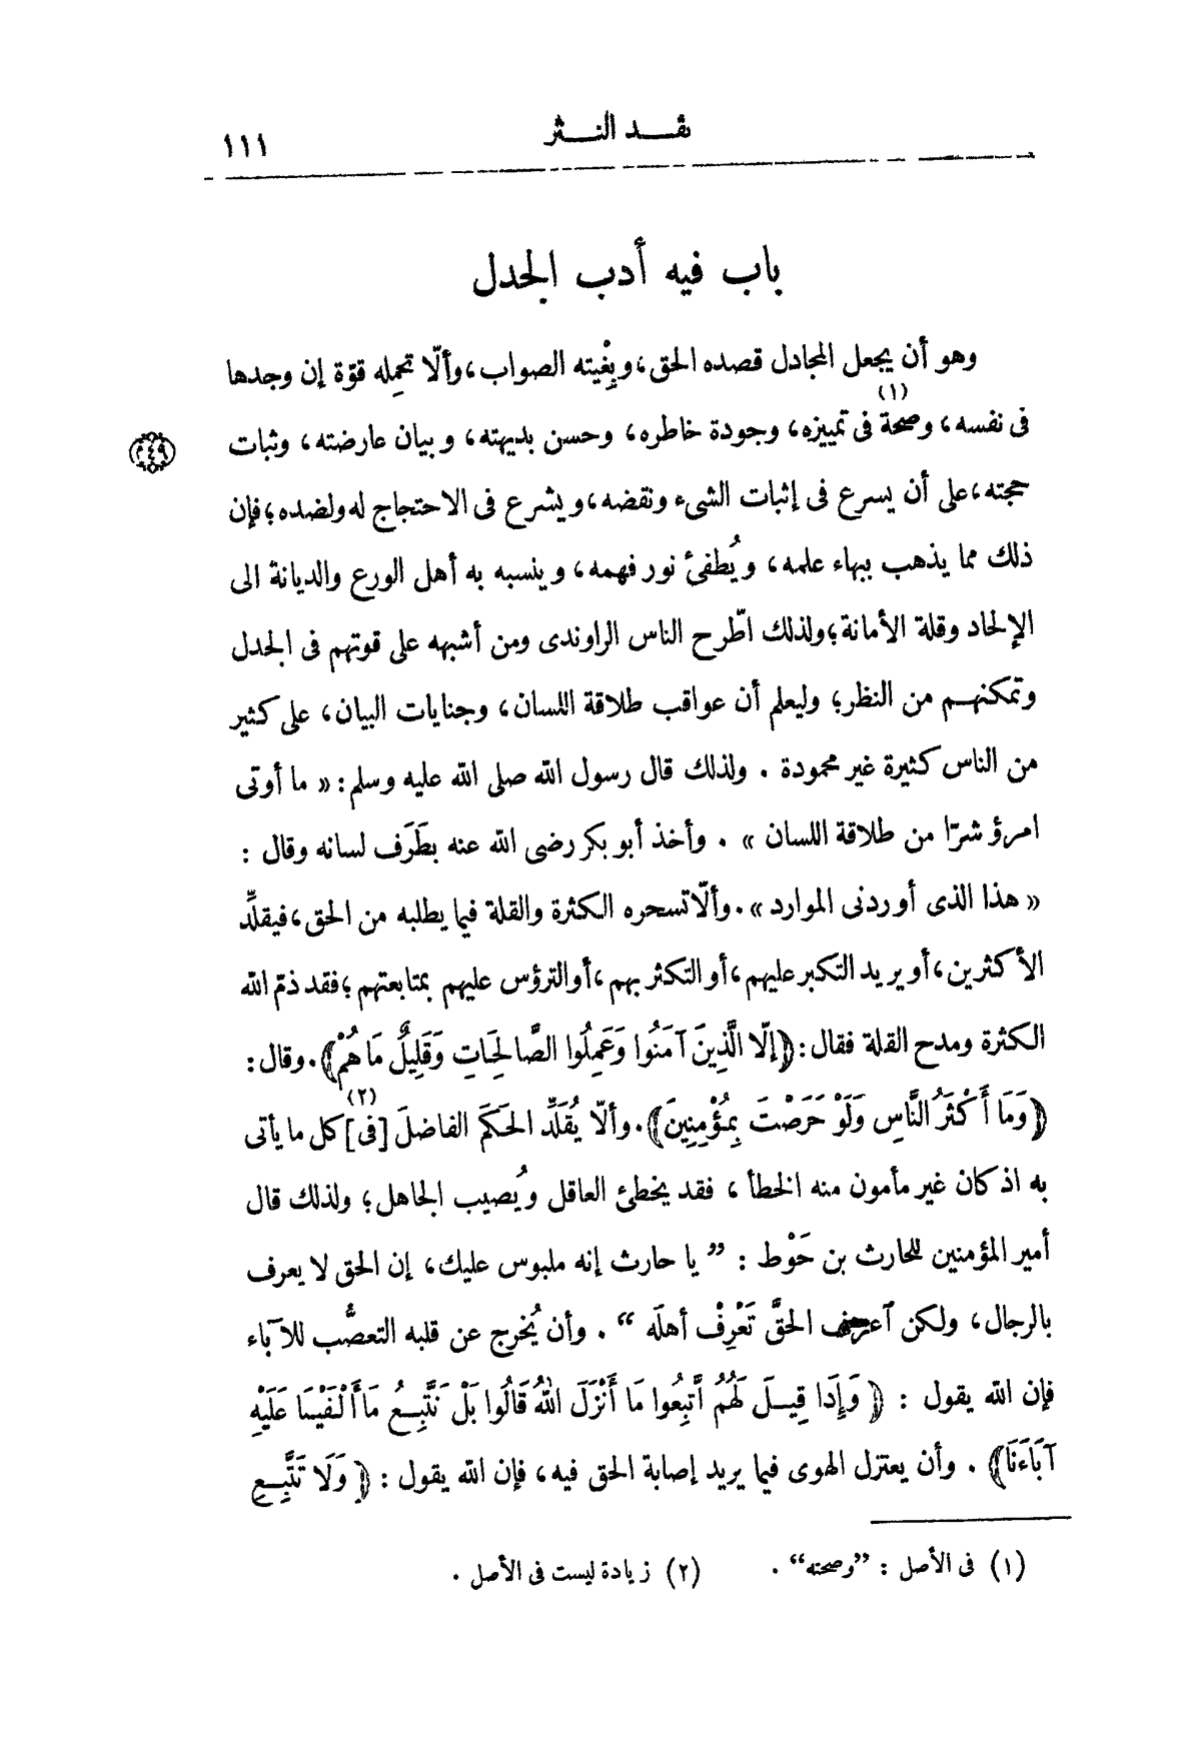 نقـــد النـــثر
١١١
باب فيه أدب الجدل
وهو أن يجعل المجادل قصده الحق، وبِغْيته الصواب، وألّا تحمِله قوّة إن وجدها
فى نفسه، وصحة(١) فى تمييزه، وجودة خاطره، وحسن بديهته، وبيان عارضته، وثبات
(٤٩م)
حجته، على أن يسرع فى إثبات الشىء ونقضه، ويشرع فى الاحتجاج له ولضده؛ فإن
ذلك مما يذهب ببهاء علمه، ويُطفئ نور فهمه، وينسبه به أهل الورع والديانة الى
الإلحاد وقلة الأمانة؛ ولذلك اطّرح الناس الراوندى ومن أشبهه على قوتهم فى الجدل
وتمكنهـم من النظر؛ وليعلم أن عواقب طلاقة اللسان، وجنايات البيان، على كثير
من الناس كثيرة غير محمودة . ولذلك قال رسول الله صلى الله عليه وسلم: « ما أوتى
امرؤ شرّا من طلاقة اللسان » . وأخذ أبو بكر رضى الله عنه بطَرَف لسانه وقال :
« هذا الذى أوردنى الموارد ». وألّا تسحره الكثرة والقلة فيما يطلبه من الحق، فيقلِّد
الأكثرين، أو يريد التكبر عليهم، أو التكثر بهم، أو الترؤس عليهم بمتابعتهم؛ فقد ذمّ الله
الكثرة ومدح القلة فقال: ﴿إلّا الَّذِينَ آمَنُوا وَعَمِلُوا الصَّالِحَاتِ وَقَلِيلٌ مَا هُمْ﴾. وقال:
﴿وَمَا أَكْثَرُ النَّاسِ وَلَوْ حَرَصْتَ بِمُؤْمِنِينَ﴾. وألّا يُقَلِّد الحَكَم الفاضلَ [فى](٢) كل ما يأتى
به اذ كان غير مأمون منه الخطأ ، فقد يخطئ العاقل ويُصيب الجاهل؛ ولذلك قال
أمير المؤمنين للحارث بن حَوْط : ” يا حارث إنه ملبوس عليك، إن الحق لا يعرف
بالرجال، ولكن آعرف الحقَّ تَعْرِفْ أهلَه “ . وأن يُخرج عن قلبه التعصُّب للآباء
فإن الله يقول : ﴿ وَإِذَا قِيـلَ لَهُمُ ٱتَّبِعُوا مَا أَنْزَلَ اللهُ قَالُوا بَلْ نَتَّبِـعُ مَا أَلْفَيْنَا عَلَيْهِ
آبَاءَنَا﴾ . وأن يعتزل الهوى فيما يريد إصابة الحق فيه، فإن الله يقول : ﴿ وَلَا تَتَّبِـعِ
(١) فى الأصل : ”وصحته“ . (٢) زيادة ليست فى الأصل .